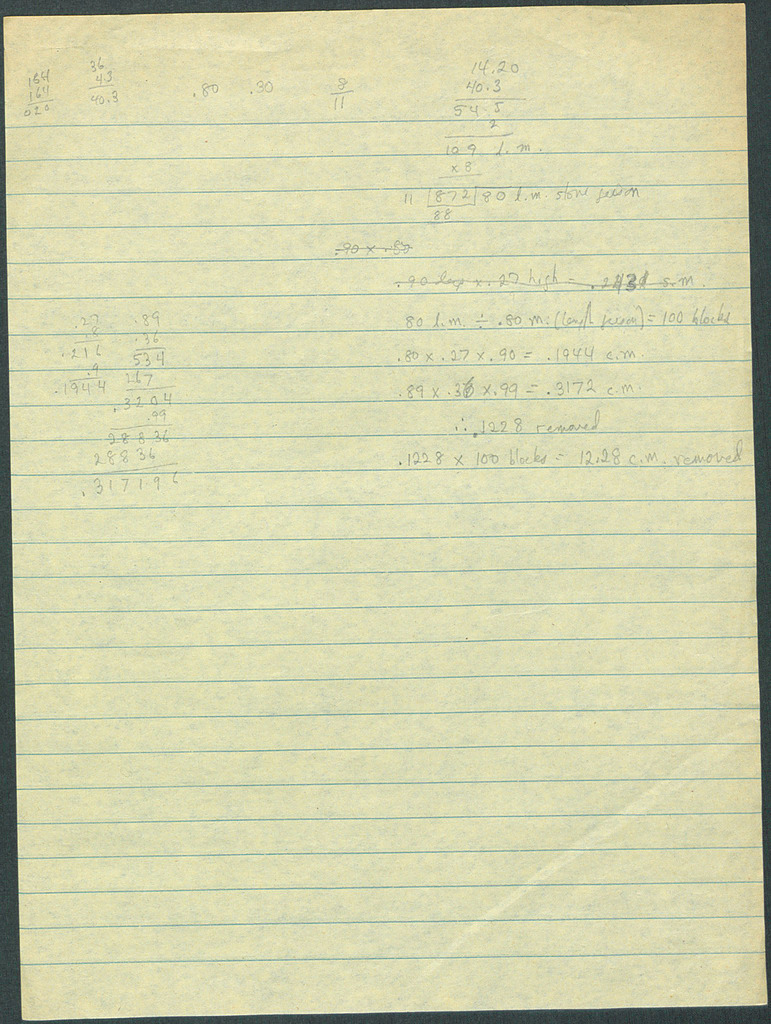 154
164
020
36
43
40.3
.80 .30
8
11
14.20
40.3
54.5
2
109 l.m.
x 8
11 872 80 l.m. stone
88
.90 x .80
.90 x .27 high = s.m.
80 l.m. ÷ .80 m. = 100 blocks
.80 x .27 x .90 = .1944 c.m.
.89 x .36 x .99 = .3172 c.m.
∴ .1228 removed
.1228 x 100 blocks = 12.28 c.m. removed
.27
.8
.216
.9
.1944
.89
.36
534
267
.3204
.99
28836
28836
.317196